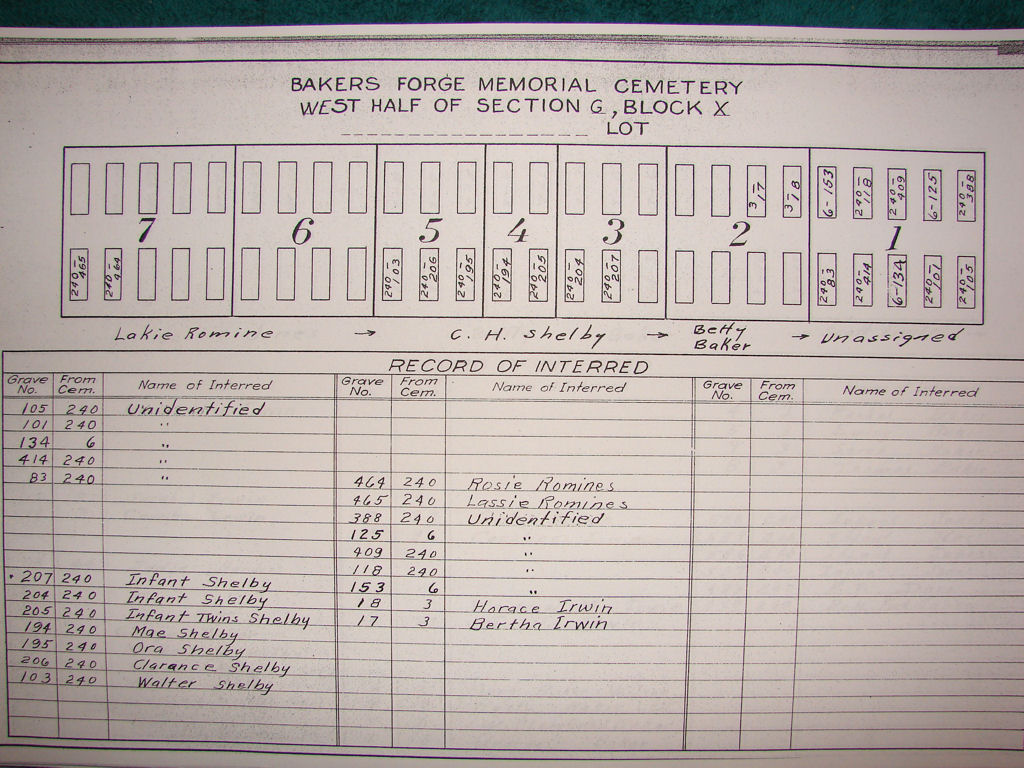 BAKERS FORGE MEMORIAL CEMETERY
WEST HALF OF SECTION G, BLOCK X
LOT
3-17 3-18 6-153 240-118 240-409 6-125 240-388
7 6 5 4 3 2 1
240-465 240-464 240-103 240-206 240-195 240-194 240-205 240-204 240-207 240-83 240-414 6-134 240-101 240-105
Lakie Romine → C. H. Shelby → Betty Baker → Unassigned
RECORD OF INTERRED
Grave No. From Cem. Name of Interred Grave No. From Cem. Name of Interred Grave No. From Cem. Name of Interred
105 240 Unidentified
101 240 "
134 6 "
414 240 "
83 240 " 464 240 Rosie Romines
465 240 Lassie Romines
388 240 Unidentified
125 6 "
409 240 "
118 240 "
207 240 Infant Shelby 153 6 "
204 240 Infant Shelby 18 3 Horace Irwin
205 240 Infant Twins Shelby 17 3 Bertha Irwin
194 240 Mae Shelby
195 240 Ora Shelby
206 240 Clarance Shelby
103 240 Walter Shelby